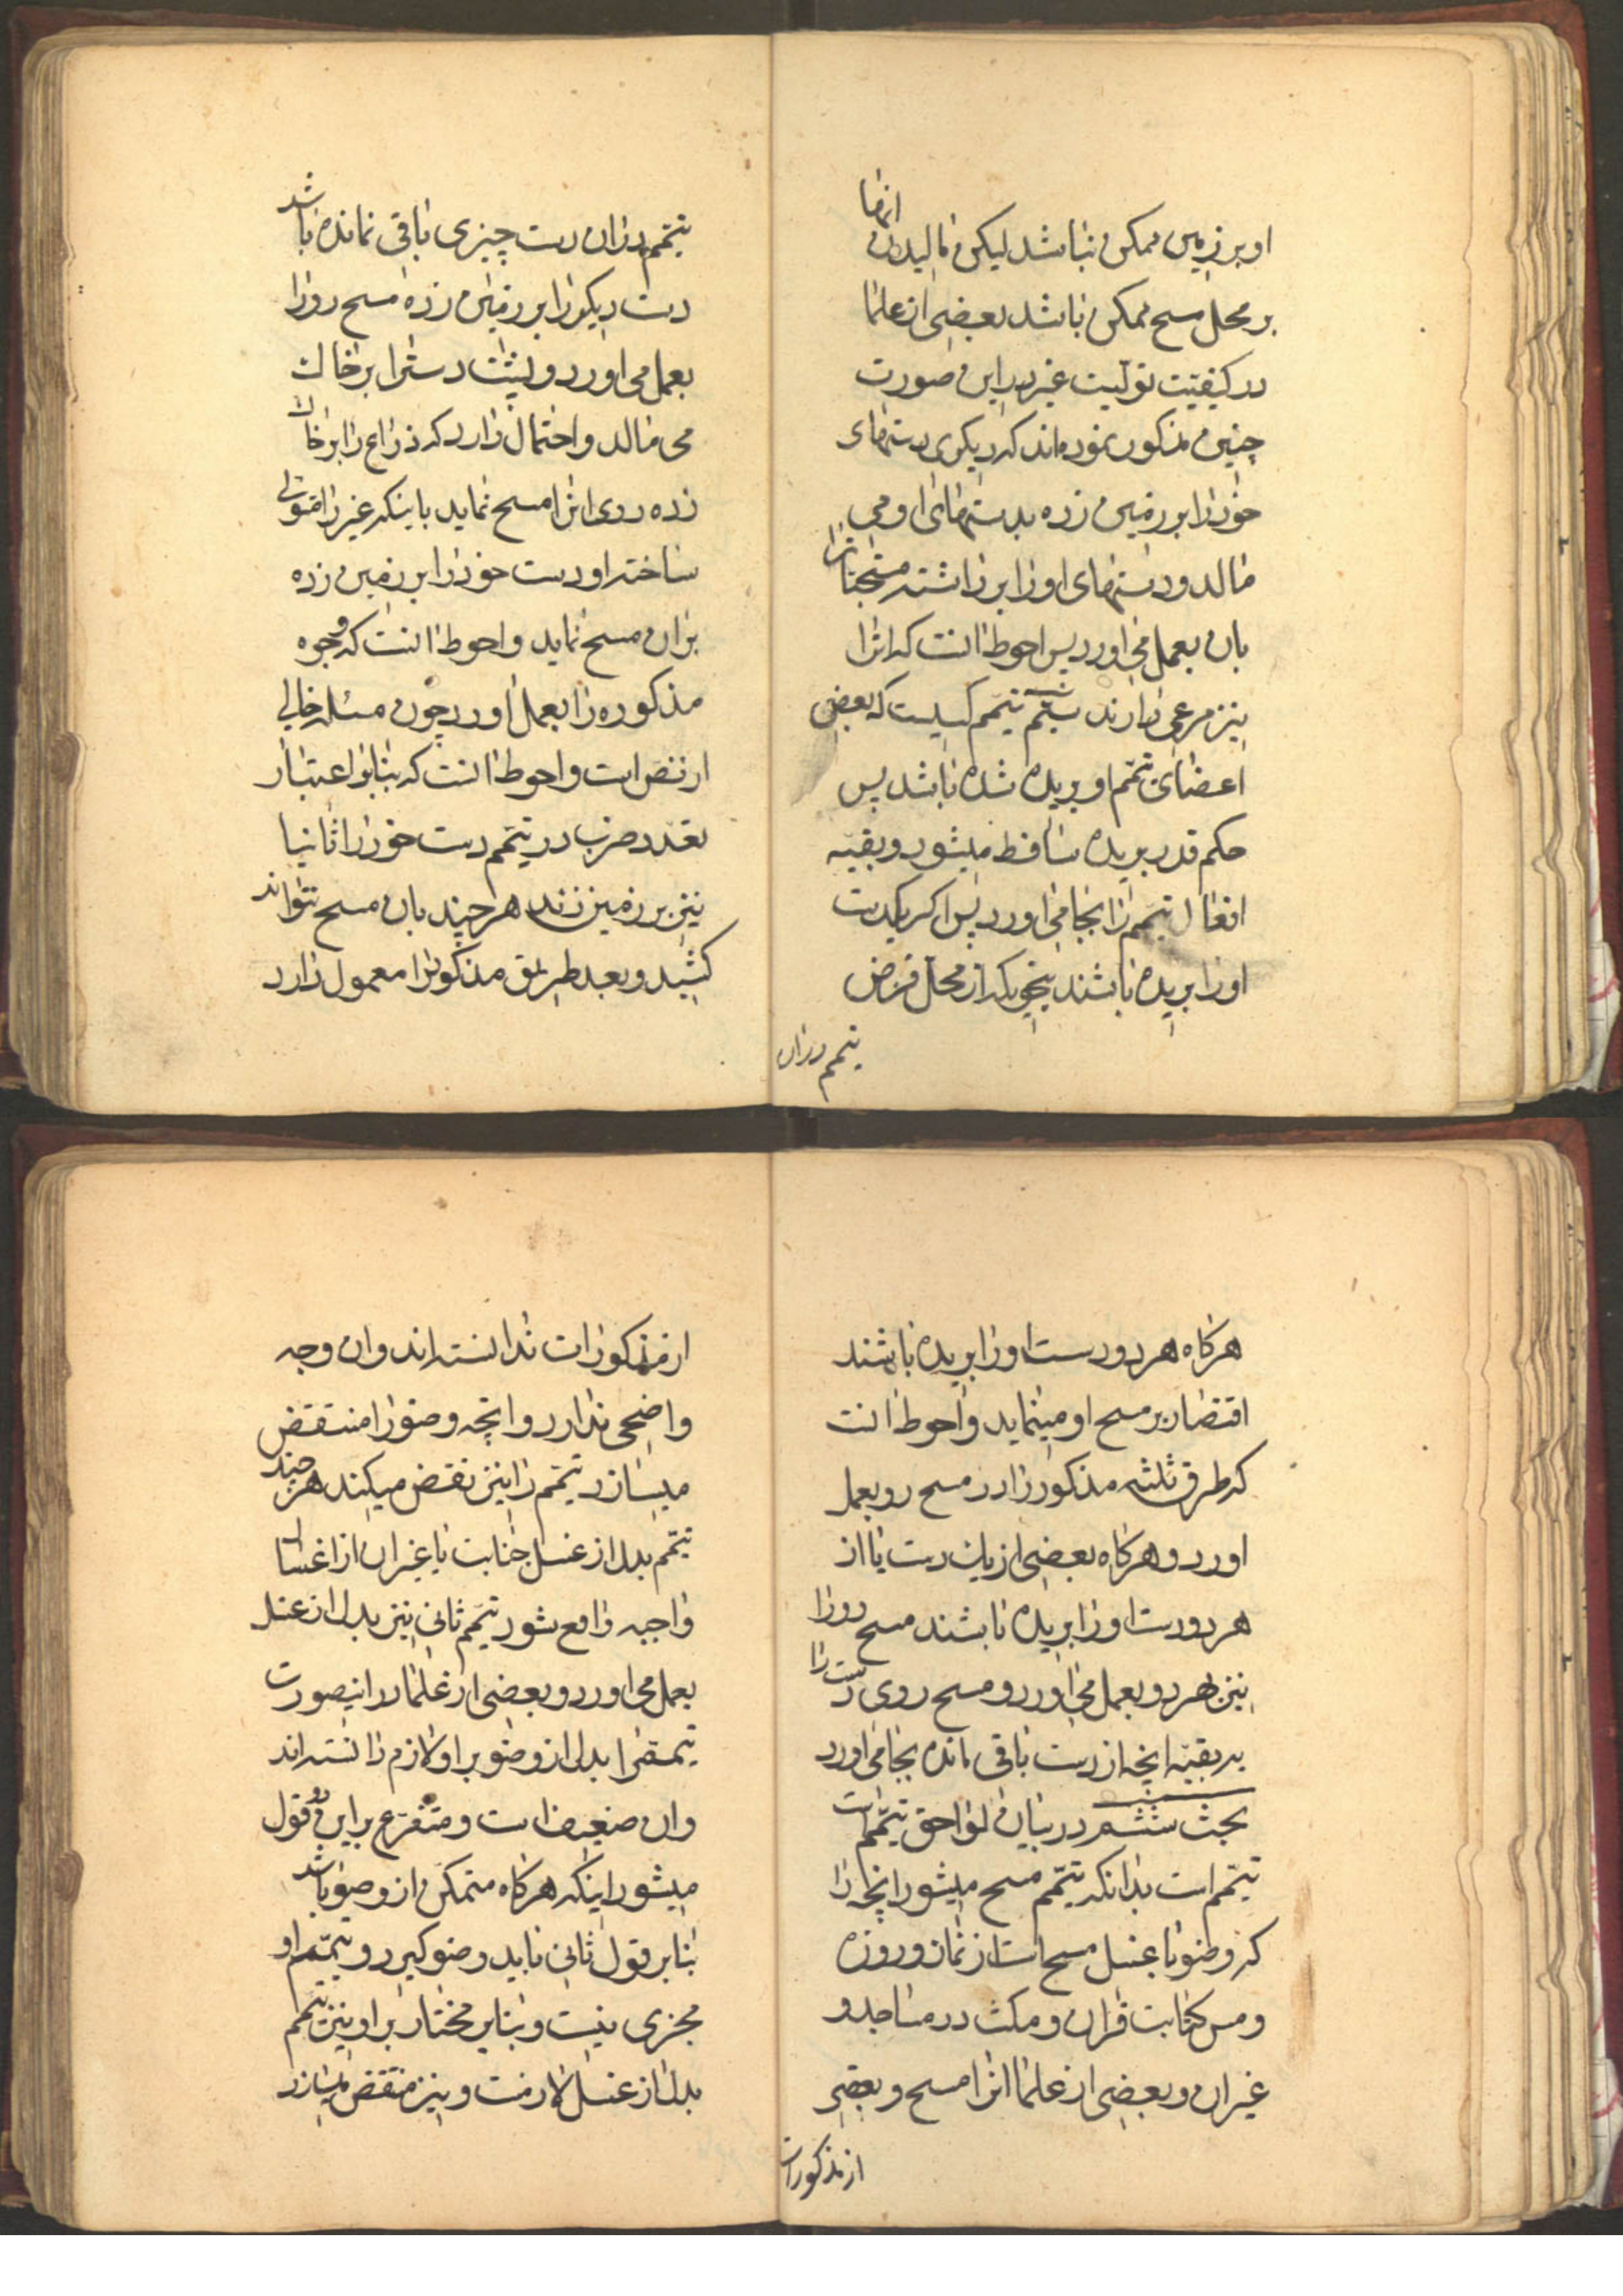 او بر زمین ممکن نباشد لیکن مالیدن انها
بر محل مسح ممکن باشد بعضی از علما
در کیفیت تولیت غیر در این صورت
چنین مذکور نموده‌اند که دیگری دستهای
خود را بر زمین زده بدستهای او می
مالد و دستهای او را برداشته مسحات را
بان بعمل می اورد پس احوط انست که انرا
نیز مرعی دارند ششم تیمم کسیست که بعضی
اعضای تیمم او بریده شده باشد پس
حکم قدر بریده ساقط میشود و بقیه
افعال تیمم را بجا می اورد پس اکر یکدست
او را بریده باشند بنحویکه از محل فرض
تیمم در ان
تیمم در ان دست چیزی باقی نمانده باشد
دست دیکر را بر زمین زده مسح رو را
بعمل می اورد و پشت دست را بر خاک
می مالد و احتمال دارد که ذراع را بر خاک
زده روی انرا مسح نماید یا اینکه غیر را متولی
ساخته او دست خود را بر زمین زده
بر ان مسح نماید و احوط انست که وجوه
مذکوره را بعمل اورد چون مسئله خالی
از نص است و احوط انست که بنابر اعتبار
تعدد ضرب در تیمم دست خود را ثانیا
نیز بر زمین زند هر چند بان مسح نتواند
کشید و بعد طریق مذکور را معمول دارد
هرکاه هر دو دست او را بریده باشند
اقتصار بر مسح او مینماید و احوط انست
که طرق ثلثه مذکور را در مسح رو بعمل
اورد و هرکاه بعضی از یک دست یا از
هر دو دست او را بریده باشند مسح رو را
نیز بهر دو بعمل می اورد و مسح روی دست را
بر بقیه انچه از دست باقی مانده بجا می اورد
بحث ششم در بیان لواحق تیمم است
تیمم است بدانکه بتیمم مسح میشود انچه را
که وضو یا غسل مسح است از نماز و روزه
و مس کتابت قران و مکث در مساجد و
غیر ان و بعضی از علما انرا مسح و بعضی
از مذکورات
از مذکورات ندانسته‌اند و ان وجه
واضحی ندارد و انچه وضو را منتقض
میسازد تیمم را نیز نقض میکند هر چند
تیمم بدل از غسل جنابت یا غیر ان از اغسال
واجبه واقع شود تیمم ثانی نیز بدل از غسل
بعمل می اورد و بعضی از علما در اینصورت
تیمم را بدل از وضو بر او لازم دانسته‌اند
و ان ضعیف است و متفرع بر این دو قول
میشود اینکه هرکاه متمکن از وضو باشد
بنابر قول ثانی باید وضو کیرد و تیمم او
مجزی نیست و بنابر مختار بر او نیز تیمم
بدل از غسل لازمست و نیز منتقض میسازد